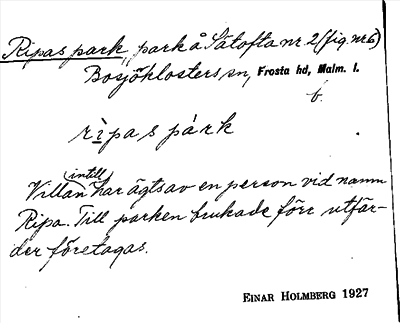 Ripas park, park å Sätofta nr 2 (fig. nr 6)
Bosjöklosters sn, Frosta hd, Malm. l.
f.
rìpas párk
intill
Villan har ägts av en person vid namn
Ripa. Till parken brukade förr utfär-
der företagas.
EINAR HOLMBERG 1927